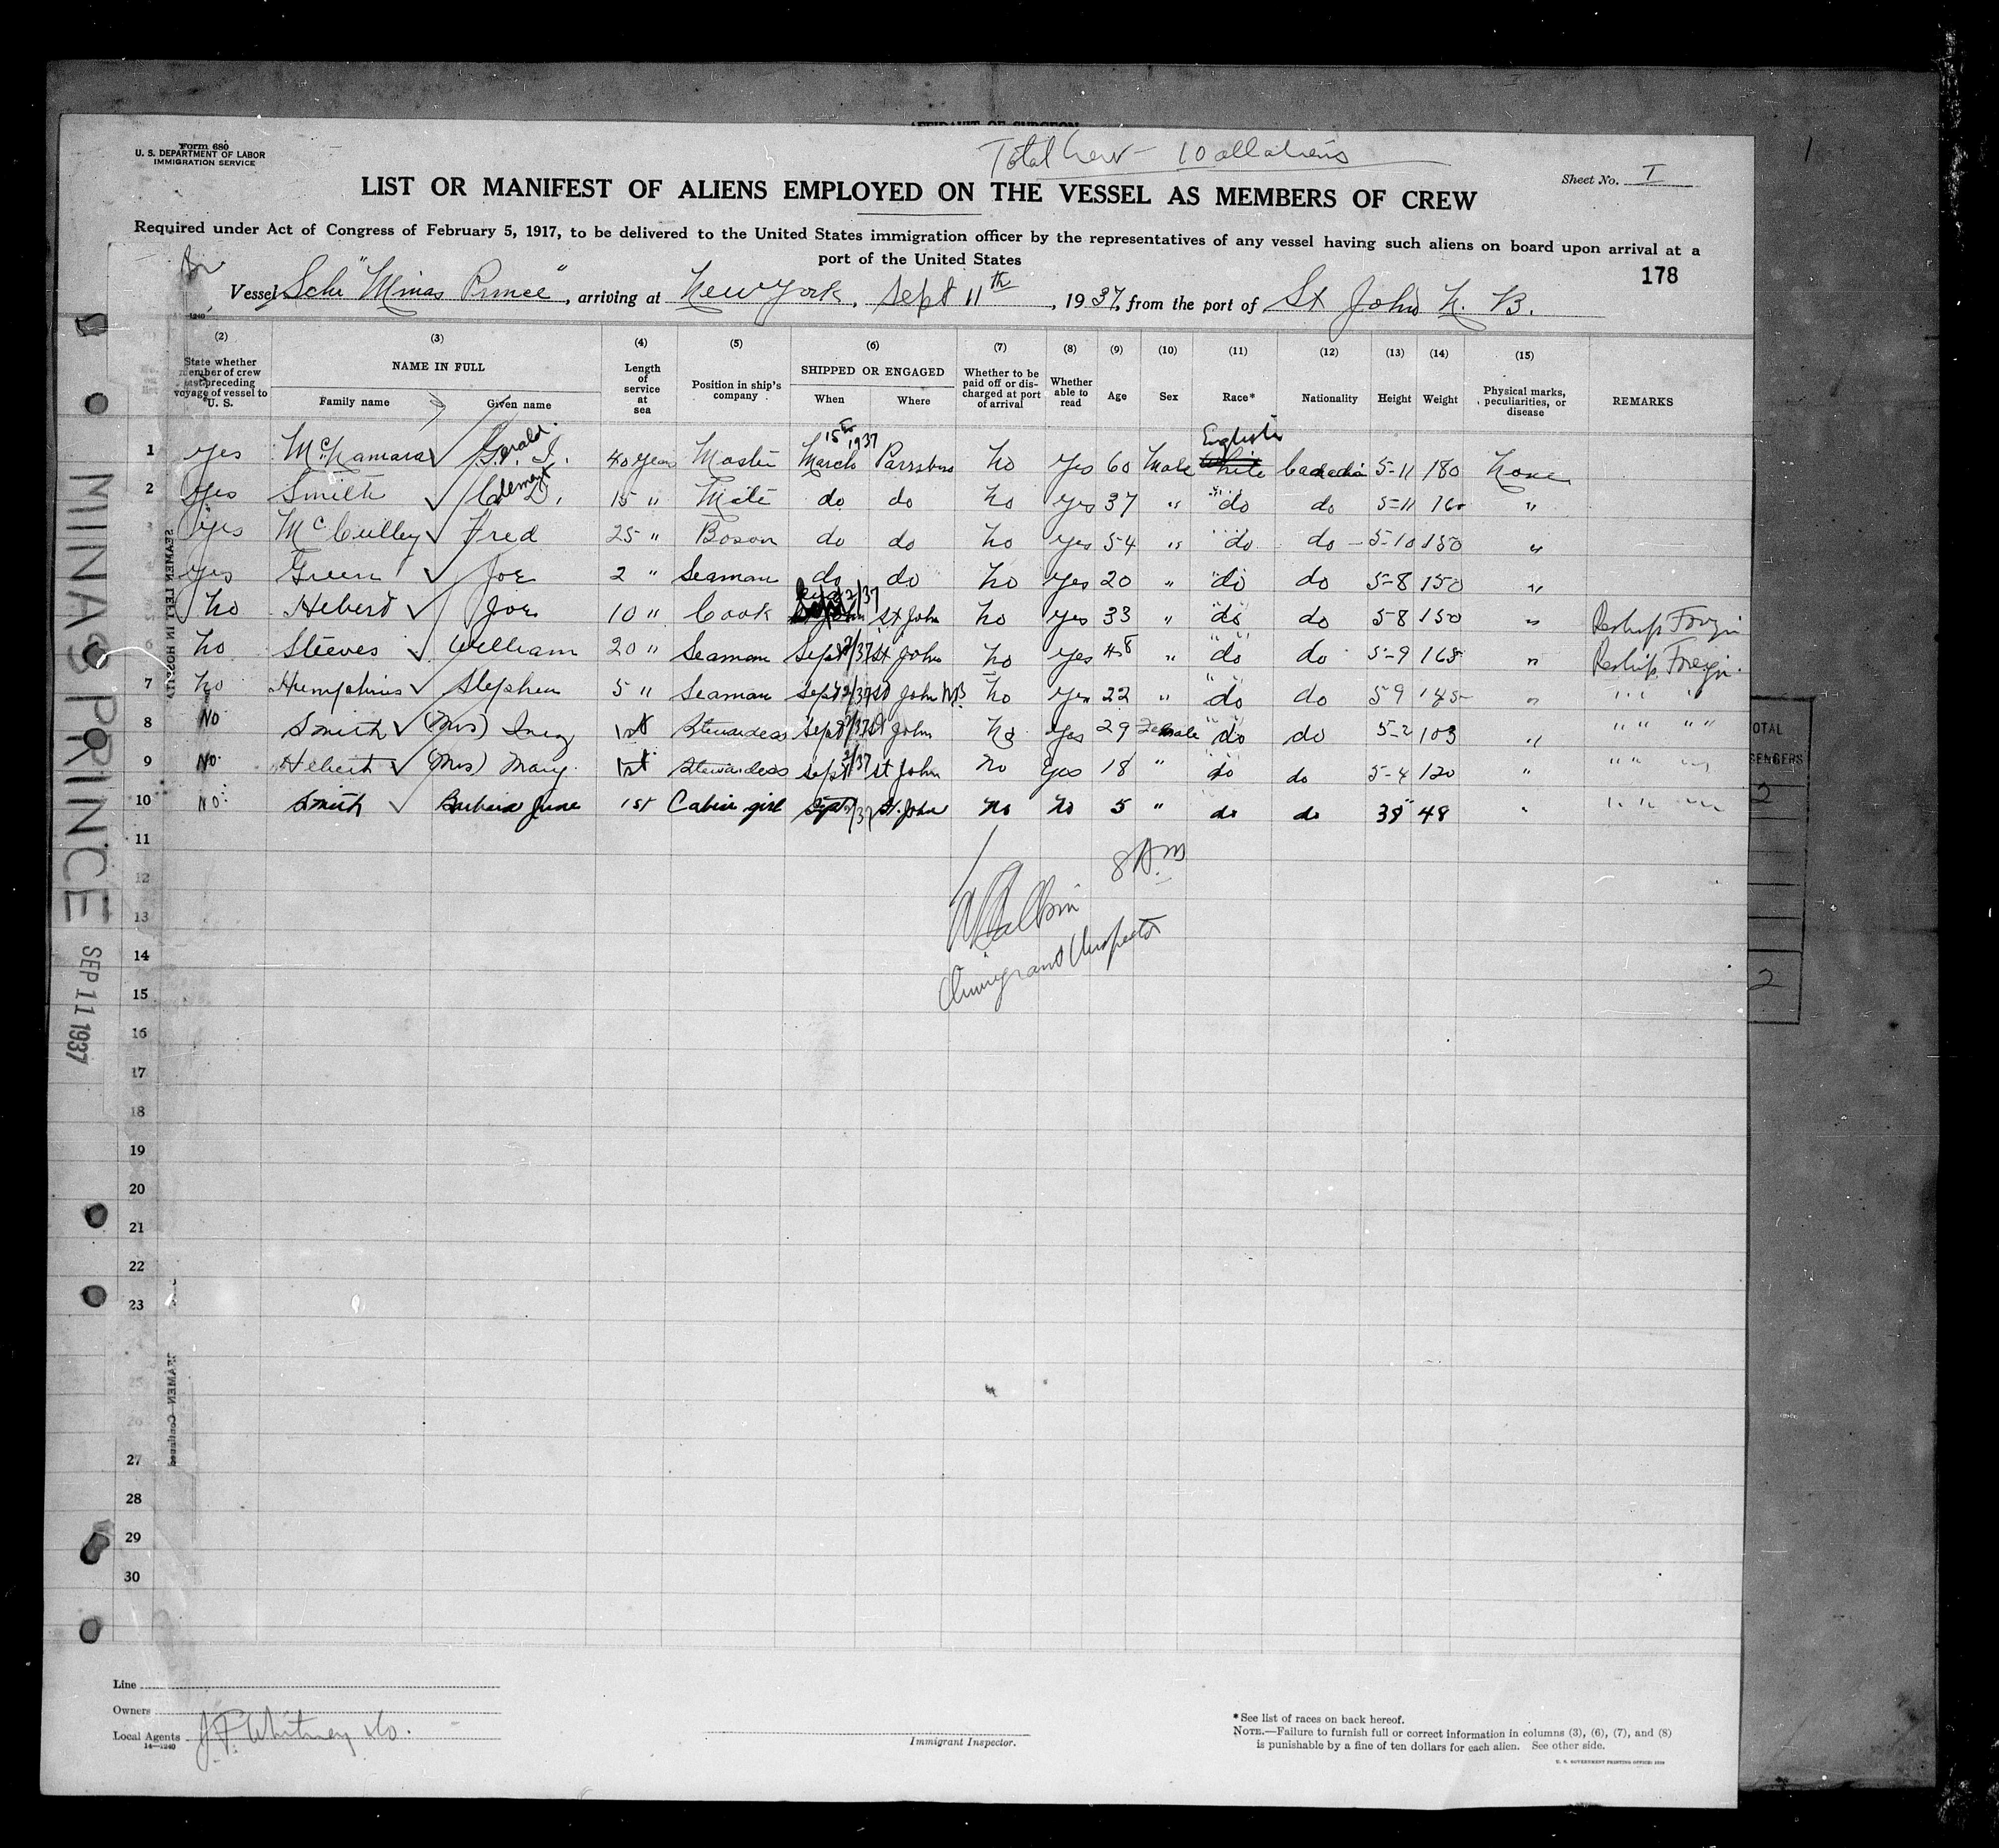 AFFIDAVIT OF SURGEON
Form 680
U. S. DEPARTMENT OF LABOR
IMMIGRATION SERVICE
Total Crew - 10 all aliens
Sheet No. I
LIST OR MANIFEST OF ALIENS EMPLOYED ON THE VESSEL AS MEMBERS OF CREW
Required under Act of Congress of February 5, 1917, to be delivered to the United States immigration officer by the representatives of any vessel having such aliens on board upon arrival at a
port of the United States
178
Vessel Schr "Minas Prince", arriving at New York, Sept 11th, 1937, from the port of St John N. B.
(2) (3) (4) (5) (6) (7) (8) (9) (10) (11) (12) (13) (14) (15)
State whether member of crew last preceding voyage of vessel to U. S. NAME IN FULL Family name Given name Length of service at sea Position in ship's company SHIPPED OR ENGAGED When Where Whether to be paid off or discharged at port of arrival Whether able to read Age Sex Race* Nationality Height Weight Physical marks, peculiarities, or disease REMARKS
1 yes McNamara Gerald I. 40 years Master March 15th 1937 Parrsboro No Yes 60 Male White English Canadian 5-11 180 None
2 yes Smith Clement D. 15 " Mate do do No yes 37 " " do do 5-11 160 "
3 yes McCulley Fred 25 " Boson do do No yes 54 " " do do 5-10 150 "
4 yes Green Joe 2 " Seaman do do No yes 20 " " do do 5-8 150 "
5 No Hebert Joe 10 " Cook Sept 2/37 St John No yes 33 " " do do 5-8 150 " Reship Foreign
6 No Steeves William 20 " Seaman Sept 2/37 St John No yes 48 " " do do 5-9 165 " Reship Foreign
7 No Humphries Stephen 5 " Seaman Sept 2/37 St John NB. No yes 22 " " do do 5 9 145 " " " "
8 No Smith (Mrs) Inez 1st Stewardess Sept 2/37 St John No yes 29 Female " do do 5-2 103 " " " " "
9 No. Hebert (Mrs) Mary 1st Stewardess Sept 2/37 St John No Yes 18 " do do 5-4 120 " " " "
10 No. Smith Barbara June 1st Cabin girl Sept 2/37 St. John No No 5 " do do 38" 48 " " " "
11
12
13
14
15
16
17
18
19
20
21
22
23
25
26
27
28
29
30
8 A.m
Immigrant Inspector
MINAS PRINCE SEP 11 1937
SEAMEN LEFT IN HOSPITAL
SEAMEN—Continued
TOTAL
2
2
Line
Owners
Local Agents J. F. Whitney & Co.
14—1240
Immigrant Inspector.
* See list of races on back hereof.
NOTE.—Failure to furnish full or correct information in columns (3), (6), (7), and (8)
is punishable by a fine of ten dollars for each alien. See other side.